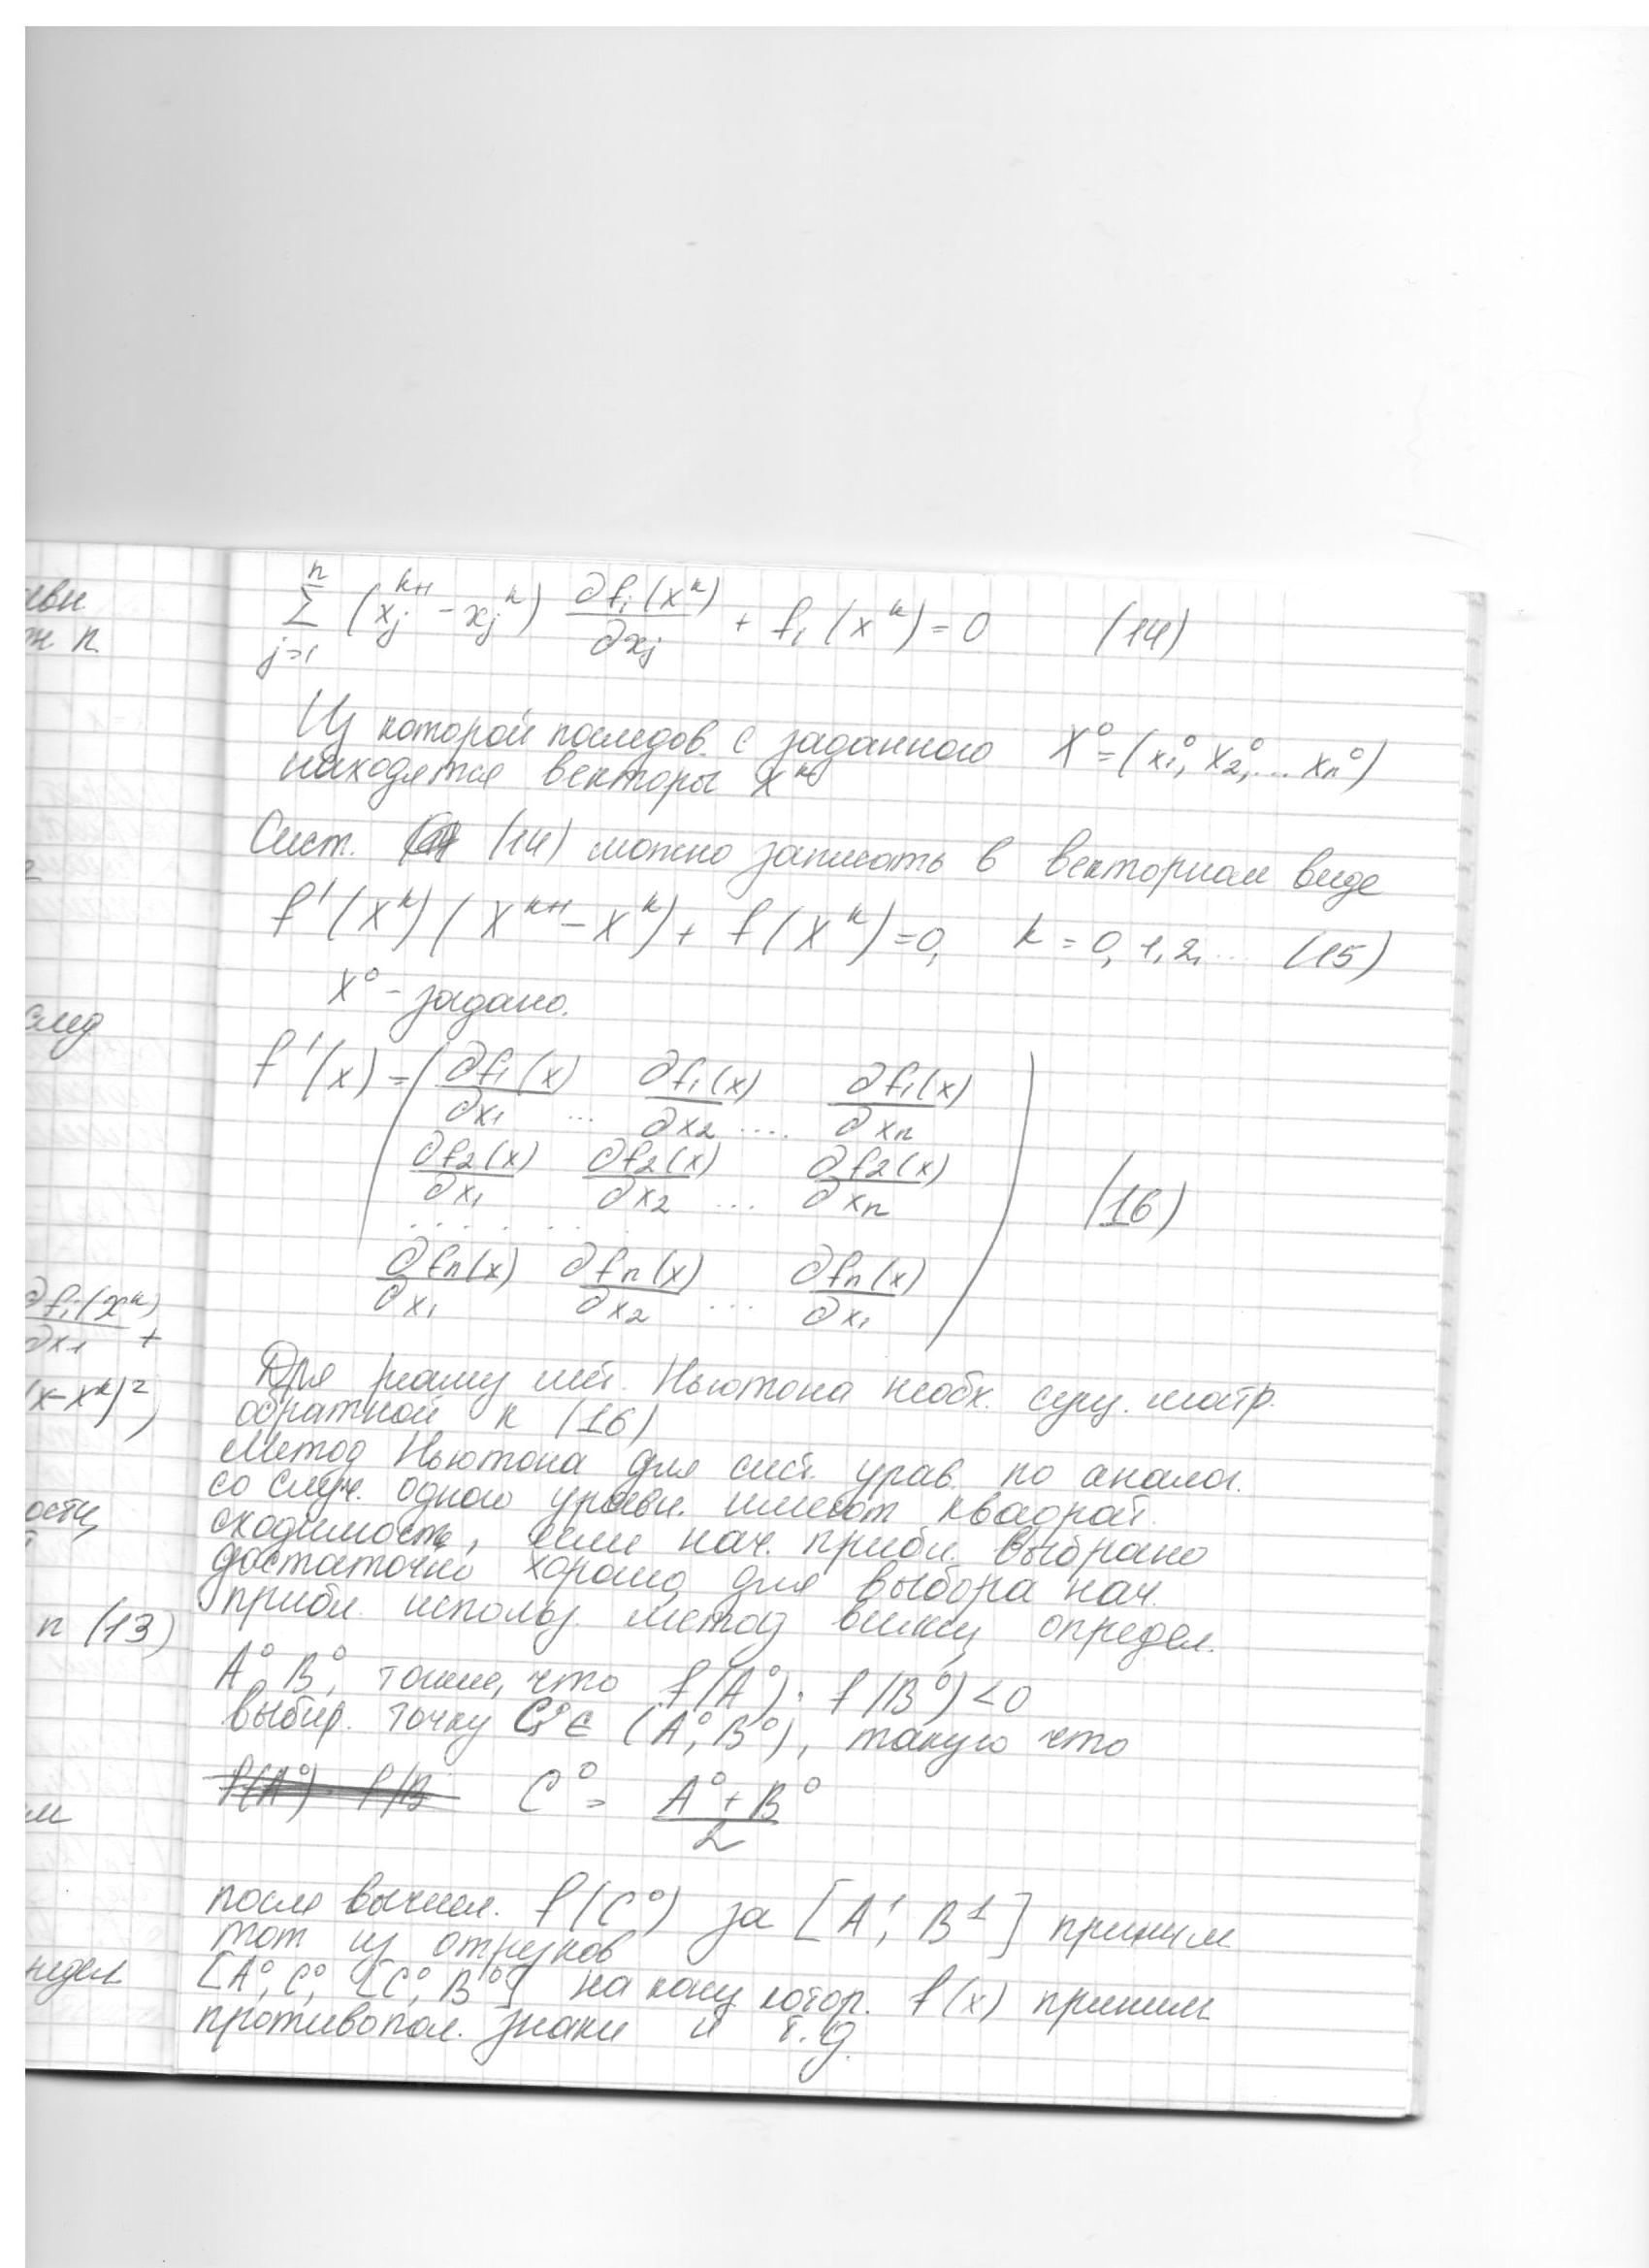 евн.
n.
след
∂fᵢ(xᵏ)
∂x₁ +
(x-xᵏ)²)
ости,
n (13)
∑ⱼ₌₁ⁿ (xⱼᵏ⁺¹ - xⱼᵏ) ∂fᵢ(xᵏ)/∂xⱼ + fᵢ(xᵏ) = 0 (14)
Из которой последов. с заданного X⁰ = (x₁⁰, x₂⁰, ... xₙ⁰)
находятся векторы xᵏ
Сист. (14) можно записать в векторном виде
f'(xᵏ)(xᵏ⁺¹ - xᵏ) + f(xᵏ) = 0, k = 0, 1, 2, ... (15)
x⁰ - задано.
f'(x) = ( ∂f₁(x)/∂x₁ ... ∂f₁(x)/∂x₂ .... ∂f₁(x)/∂xₙ
∂f₂(x)/∂x₁ ∂f₂(x)/∂x₂ ... ∂f₂(x)/∂xₙ
. . . . . . (16)
∂fₙ(x)/∂x₁ ∂fₙ(x)/∂x₂ ... ∂fₙ(x)/∂x₁ )
Для Ньютона необх. сущ. матр.
обратной к (16)
Метод Ньютона для сист. урав. по аналог.
со случ. одного уравн. имеет квадрат.
сходимость, если нач. прибл. выбрано
достаточно хорошо, для выбора нач.
прибл. использ. метод вилки, определ.
A⁰, B⁰, такие, что f(A⁰) · f(B⁰) < 0
выбир. точку C⁰ ∈ (A⁰, B⁰), такую что
f(A⁰) · f(B C⁰ = (A⁰ + B⁰)/2
после вычисл. f(C⁰) за [A¹, B¹] приним
тот из отрезков
[A⁰, C⁰, [C⁰, B⁰] на конц котор. f(x) приним
противопол. знаки и т.д.